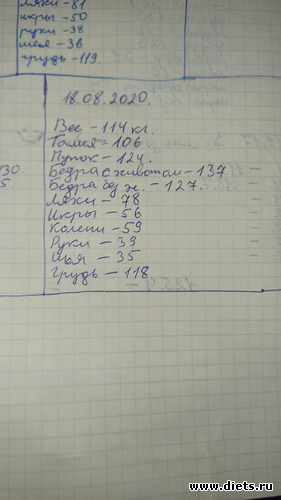 ляжи - 81
икры - 50
руки - 38
шея - 36
грудь - 119.
18.08.2020.
Вес - 114 кг.
Талия - 106
Пупок - 124.
Бедра с животом - 137
Бедра без ж. - 127.
Ляжи - 78
Икры - 56
Колени - 59
Руки - 39
Шья - 35
Грудь - 118
130
5.
www.diets.ru